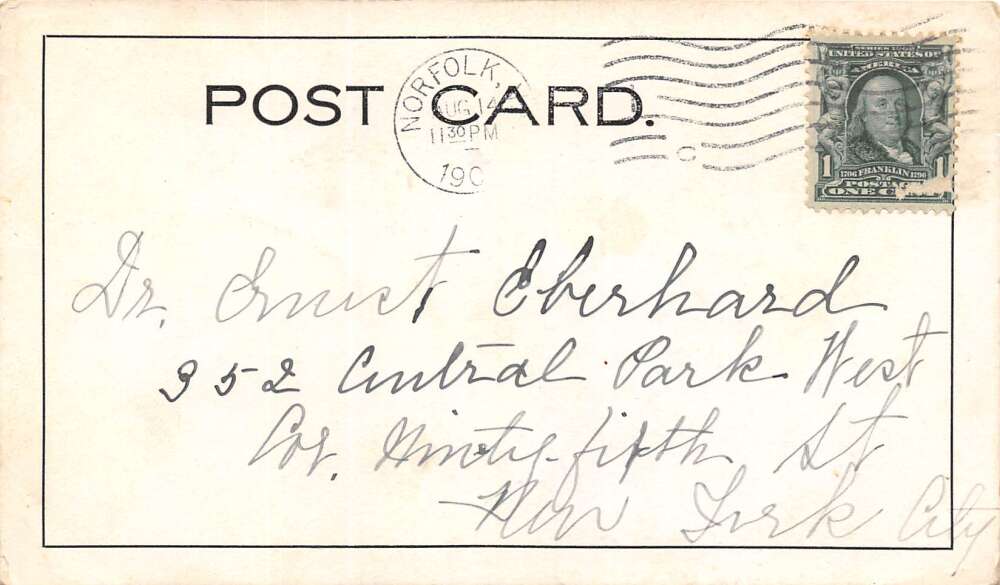 POST CARD.
NORFOLK,
AUG 14
11 30 PM
190
C
SERIES 1902
UNITED STATES OF
AMERICA
1 1706 FRANKLIN 1790 1
POSTAGE
ONE C
Dr. Ernest Eberhard
352 Central Park West
Cor. Ninety-fifth St
New York City